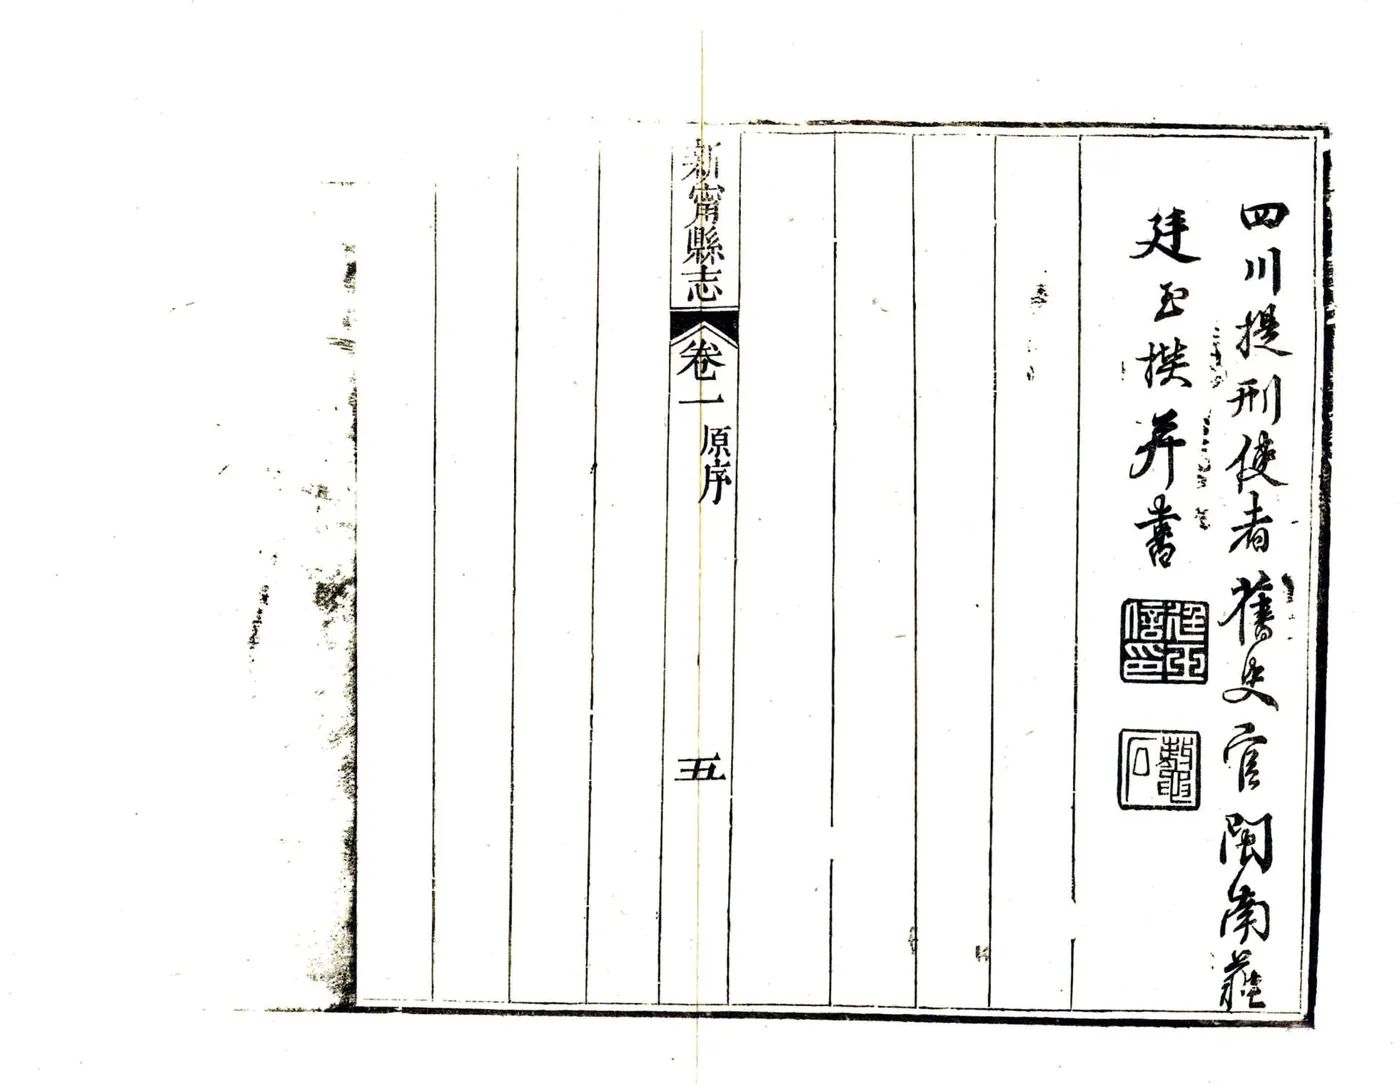 四川提刑使者舊史官閩南蘇
廷玉撰并書
廷玉信印
鰲石
新甯縣志
卷一
原序
五